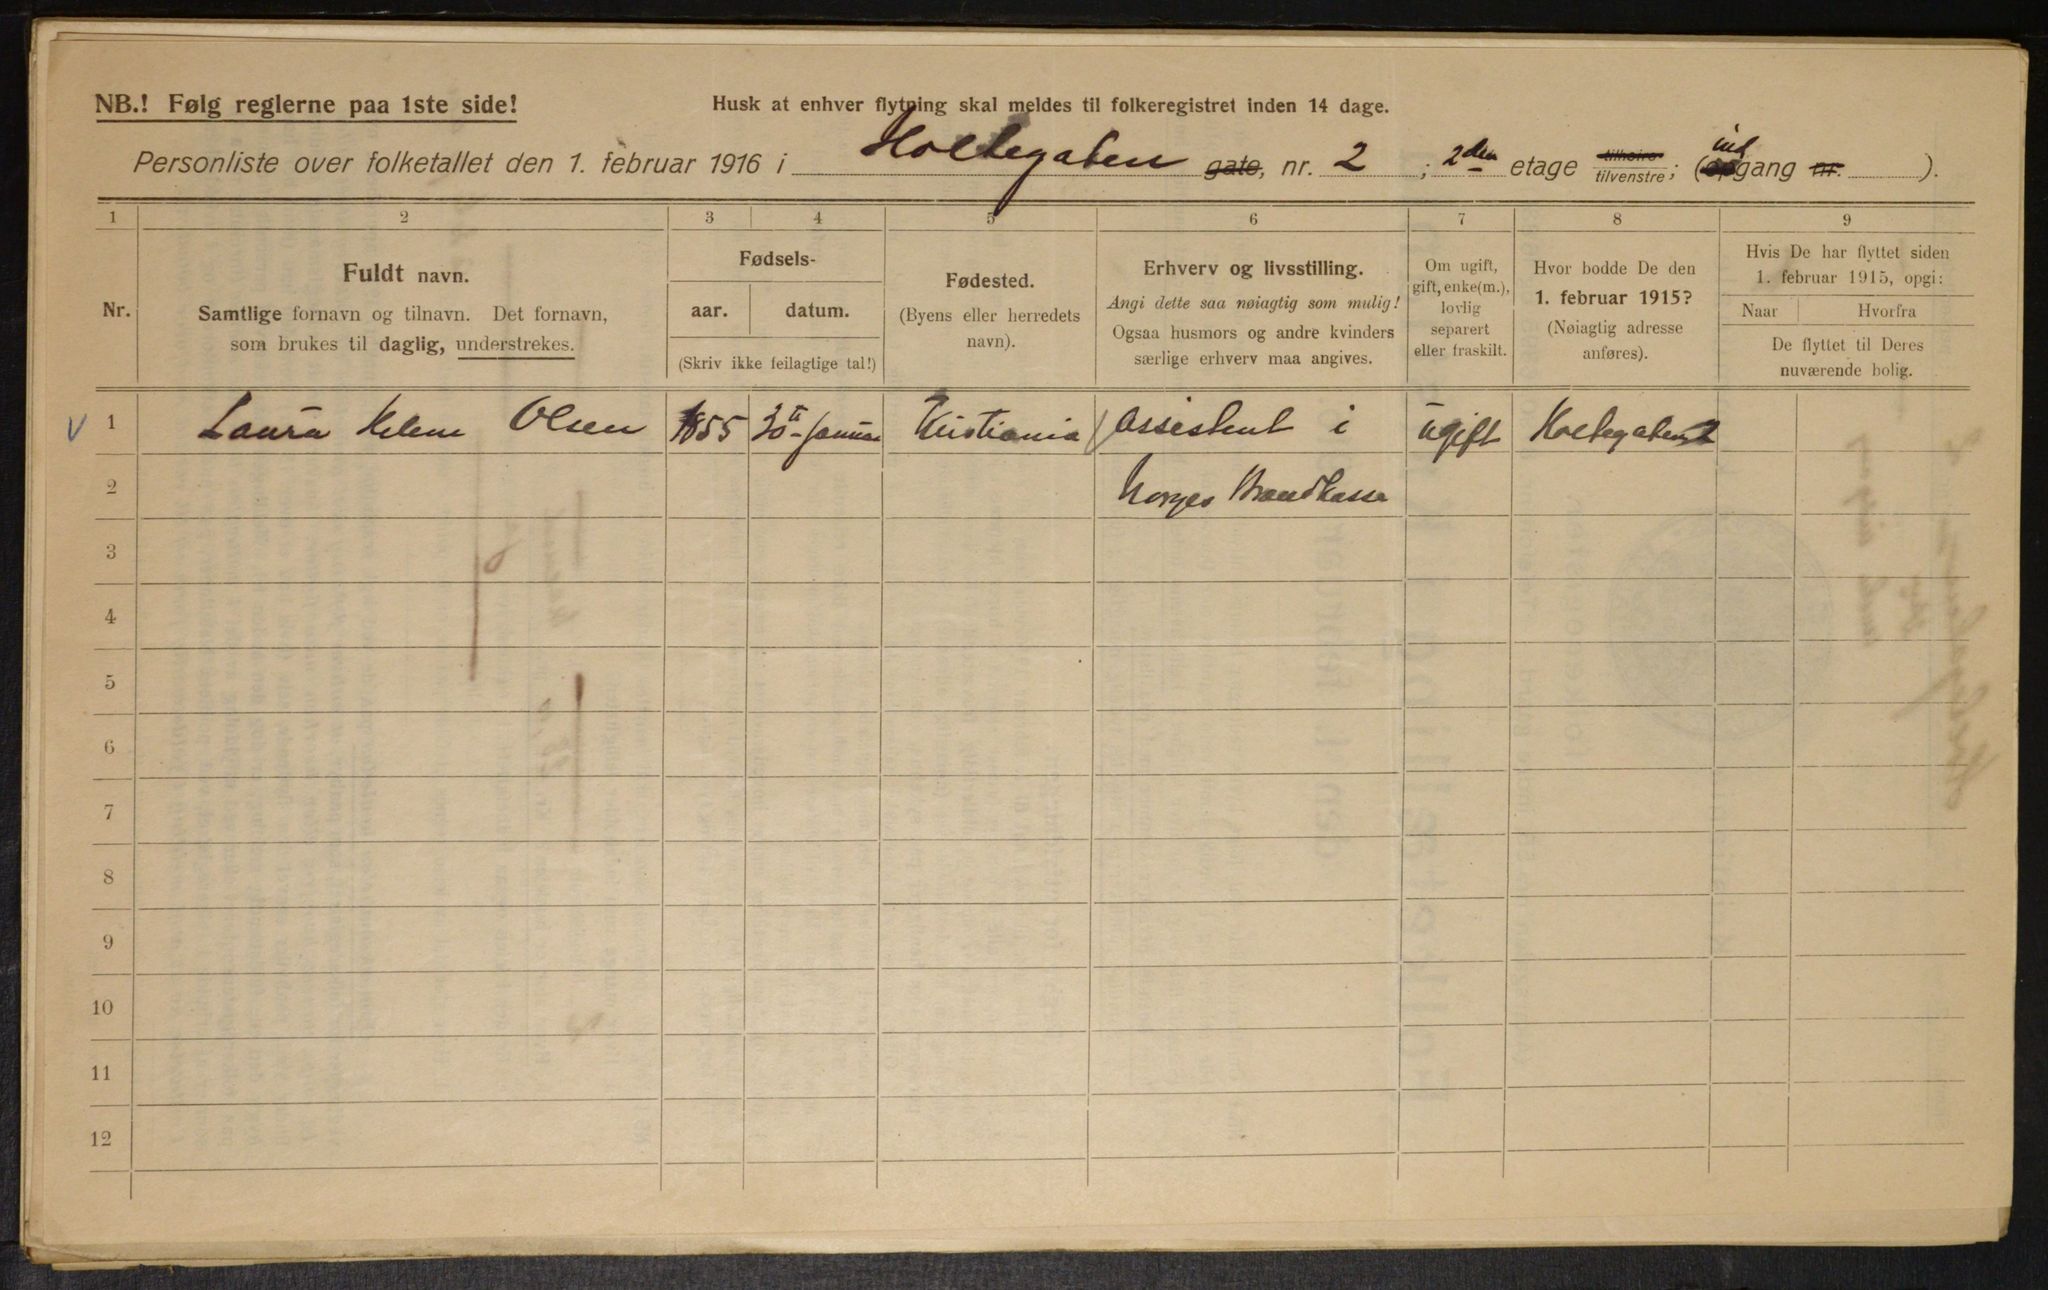 NB.! Følg reglerne paa 1ste side!
Husk at enhver flytning skal meldes til folkeregistret inden 14 dage.
Personliste over folketallet den 1. februar 1916 i Holtegaten gate, nr. 2 ; 2den etage tilhøire tilvenstre; (indgang nr. ).
1 2 3 4 5 6 7 8 9
Nr.
Fuldt navn.
Samtlige fornavn og tilnavn. Det fornavn,
som brukes til daglig, understrekes.
Fødsels-
aar. datum.
(Skriv ikke feilagtige tal!)
Fødested.
(Byens eller herredets
navn).
Erhverv og livsstilling.
Angi dette saa nøiagtig som mulig!
Ogsaa husmors og andre kvinders
særlige erhverv maa angives.
Om ugift,
gift, enke(m.),
lovlig
separert
eller fraskilt.
Hvor bodde De den
1. februar 1915?
(Nøiagtig adresse
anføres).
Hvis De har flyttet siden
1. februar 1915, opgi:
Naar Hvorfra
De flyttet til Deres
nuværende bolig.
1 Laura Helene Olsen 1855 Januar Kristiania Assistent i ugift Holtegaten 2
2 Norges Brandkasse
3
4
5
6
7
8
9
10
11
12